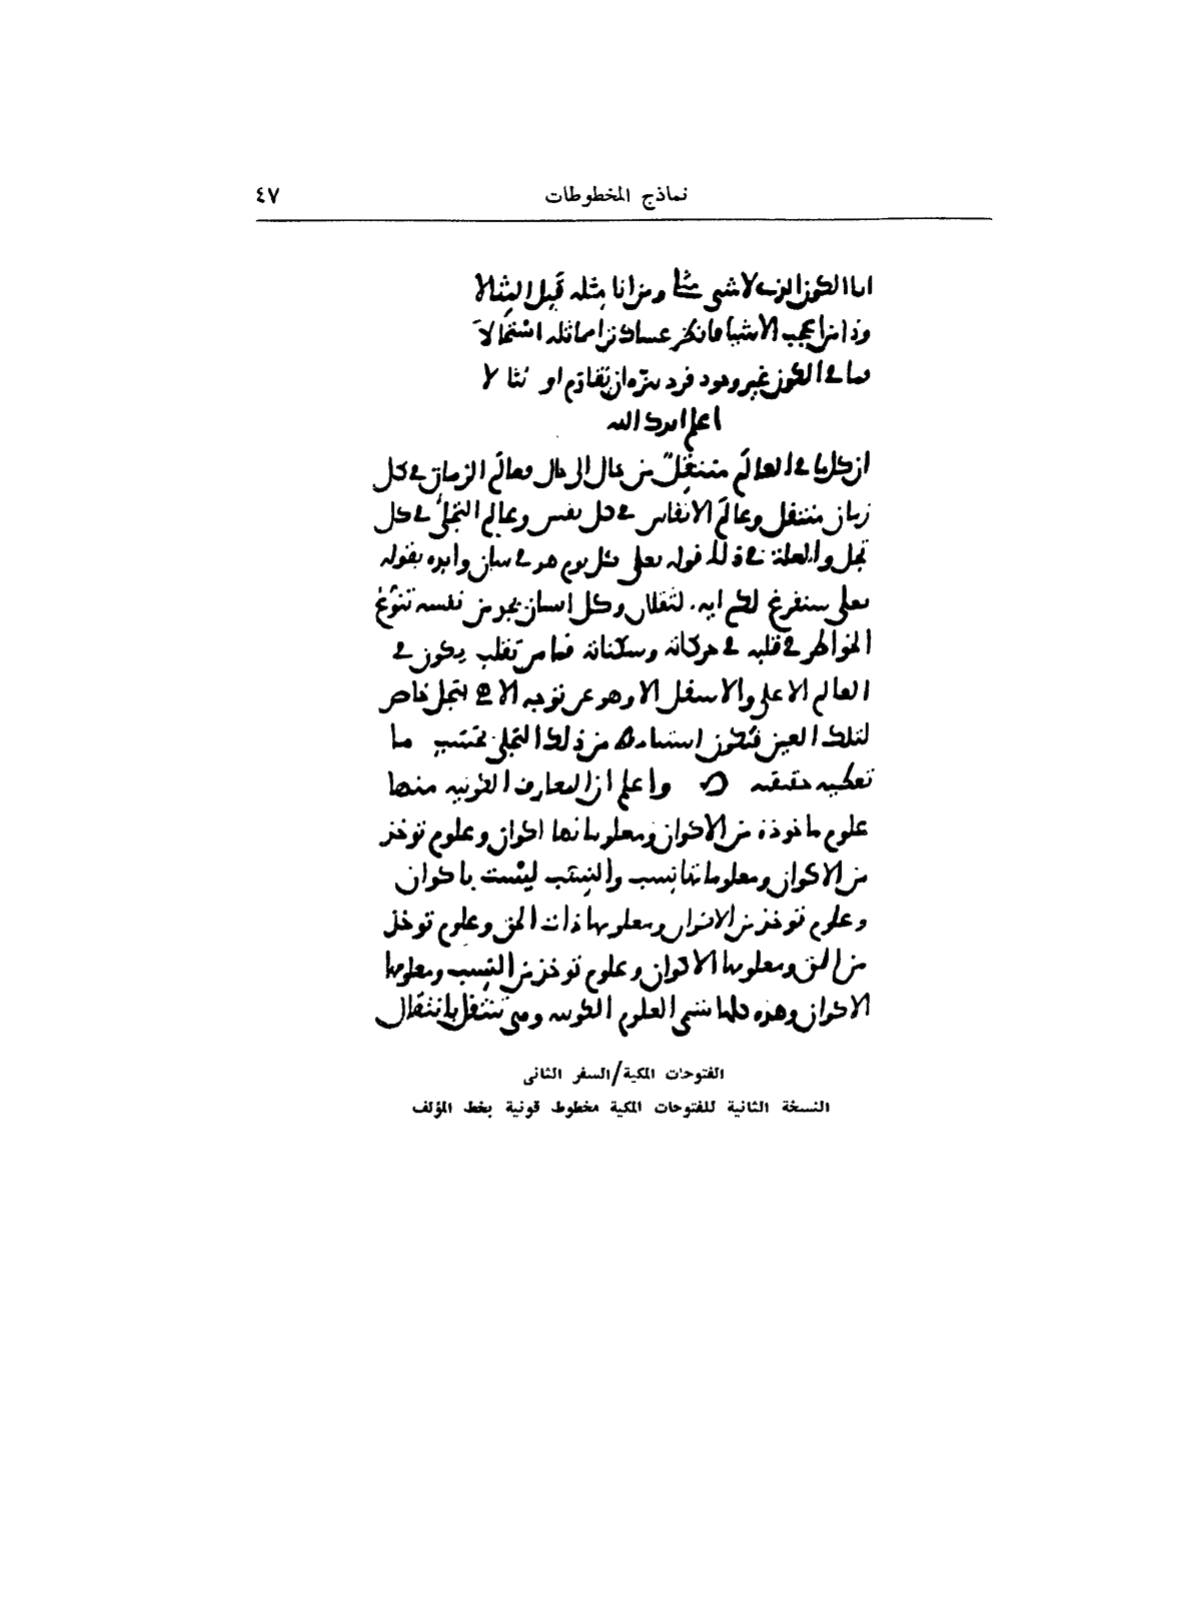 نماذج المخطوطات ٤٧
انا الكون الذي لا شي مثلي ومن انا مثله قبل المثالا
وذا من اعجب الاشيا فانظر عساك ترا مماثله استحالا
فما في الكون غير وجود فرد تنزه ان يقاوم او ينالا
اعلم ايدك الله
ان كل ما في العالم منتقل من حال الى حال فعالم الزمان في كل
زمان منتقل وعالم الانفاس في كل نفس وعالم التجلي في كل
تجل والعلة في ذلك قوله تعلى كل يوم هو في شان وايده بقوله
تعلى سنفرغ لكم ايه الثقلان وكل انسان يجد من نفسه تنوع
الخواطر في قلبه في حركاته وسكناته فما من تقلب يكون في
العالم الاعلى والاسفل الا وهو عن توجه الاهي بتجل خاص
لتلك العين فيكون استناده من ذلك التجلي بحسب ما
تعطيه حقيقته واعلم ان المعارف الكونية منها
علوم ماخوذة من الاكوان ومعلوماتها اكوان وعلوم توخذ
من الاكوان ومعلوماتها نسب والنسب ليست باكوان
وعلوم توخذ من الاكوان ومعلومها ذات الحق وعلوم توخذ
من الحق ومعلومها الاكوان وعلوم توخذ من النسب ومعلومها
الاكوان وهذه كلها تسمى العلوم الكونيه وهي تنتقل بانتقال
الفتوحات المكية/السفر الثانى
النسخة الثانية للفتوحات المكية مخطوط قونية بخط المؤلف